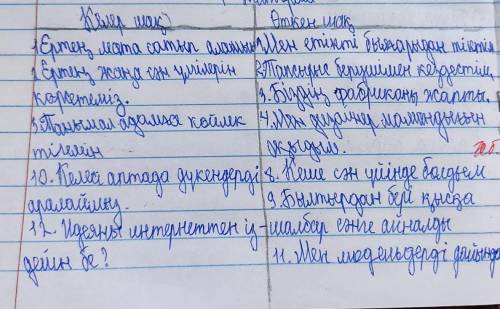 Келер шақ
Өткен шақ
1. Ертең мата сатып аламын
2. Ертең жаңа сән үлгілерін
көрсетеміз.
3. Танымал адамға көйлек
тігемін
10. Келесі аптада дүкендерді
аралаймыз.
12. Идеяны интернеттен із-
дейін бе?
1. Мен етікті былғарыдан тіктім
2. Тапсырыс берушімен кездестім.
3. Біздің фабриканы жапты.
4. Мен дизайнер мамандығын
оқыдым.
8. Кеше сән үйінде болдым
9. Былтырдан бері қысқа
шалбар сәнге айналды
11. Мен модельдерді дайында